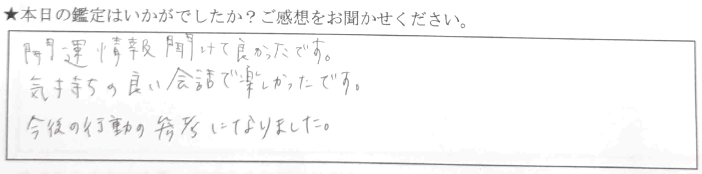 ★本日の鑑定はいかがでしたか?ご感想をお聞かせください。
開運情報聞けて良かったです。
気持ちの良い会話で楽しかったです。
今後の行動の参考になりました。